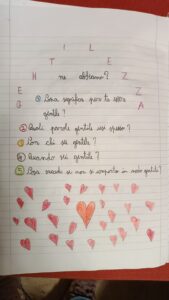 GENTILEZZA
ne abbiamo?
① Cosa significa per te essere
gentile?
② Quali parole gentili usi spesso?
③ Con chi sei gentile?
④ Quando sei gentile?
⑤ Cosa succede se non si comporta in modo gentile?